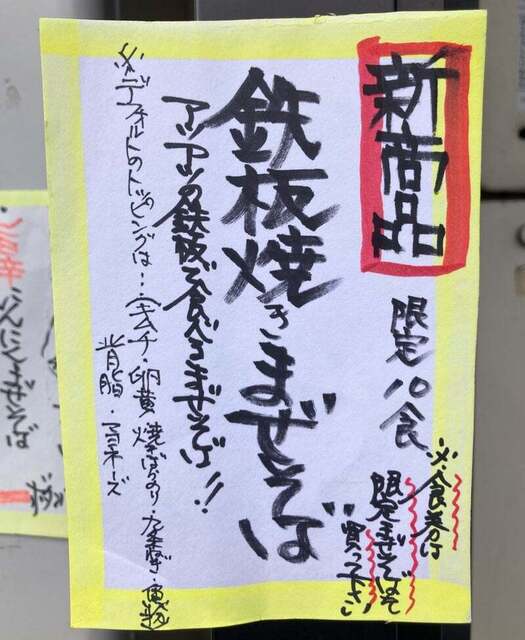 新商品
限定10食
※食券は
限定まぜそばを
買って下さい
鉄板焼きまぜそば
アツアツの鉄板で食べるまぜそば!!
※デフォルトのトッピングは…キムチ・卵黄・焼ばらのり・九条葱・魚粉
背脂・マヨネーズ
にんにくまぜそば